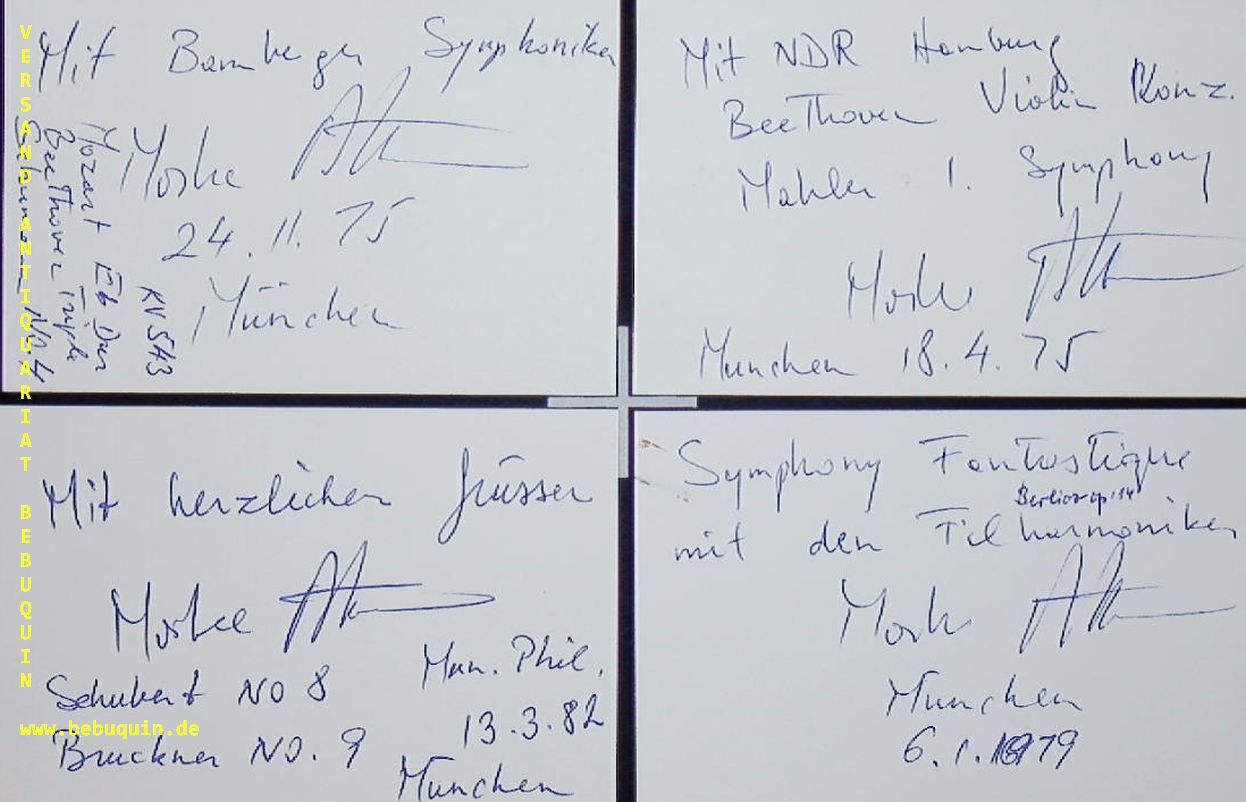 Mit Bamberger Symphoniker
24.11.75
München
Mozart Eb Dur
KV 543
Beethoven Triple
Schumann No. 4
Mit NDR Hamburg
BeeThoven Violin Konz.
Mahler 1. Symphony
Munchen 18.4.75
Mit herzlichen Grüssen
Schubert NO 8
Bruckner NO. 9
Mun. Phil.
13.3.82
Munchen
Symphony Fantastique
Berlioz op. 14
mit den Filharmoniker
Munchen
6.1.1979
VERSAND ANTIQUARIAT BEBUQUIN
www.bebuquin.de